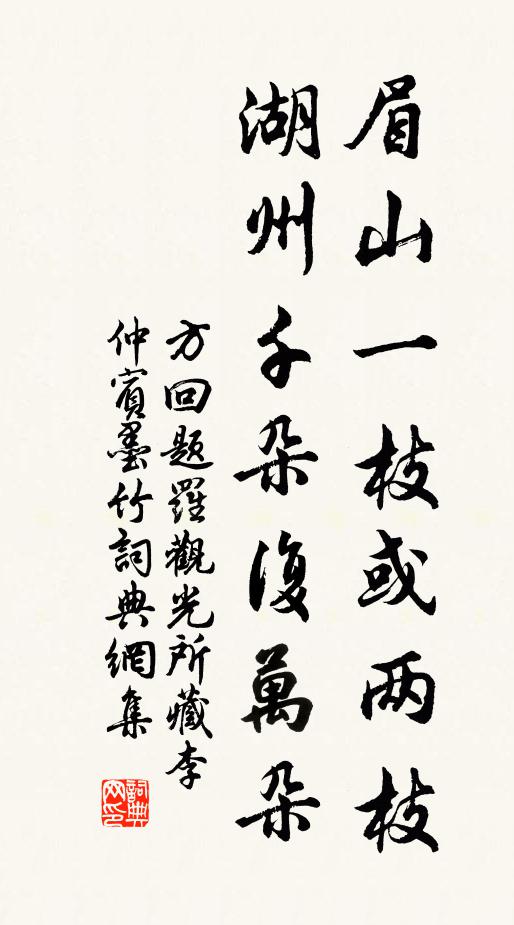 眉山一枝或两枝
湖州千朵復萬朵
方回题羅觀光所藏李
仲賓墨竹詞典網集
詞典
网印